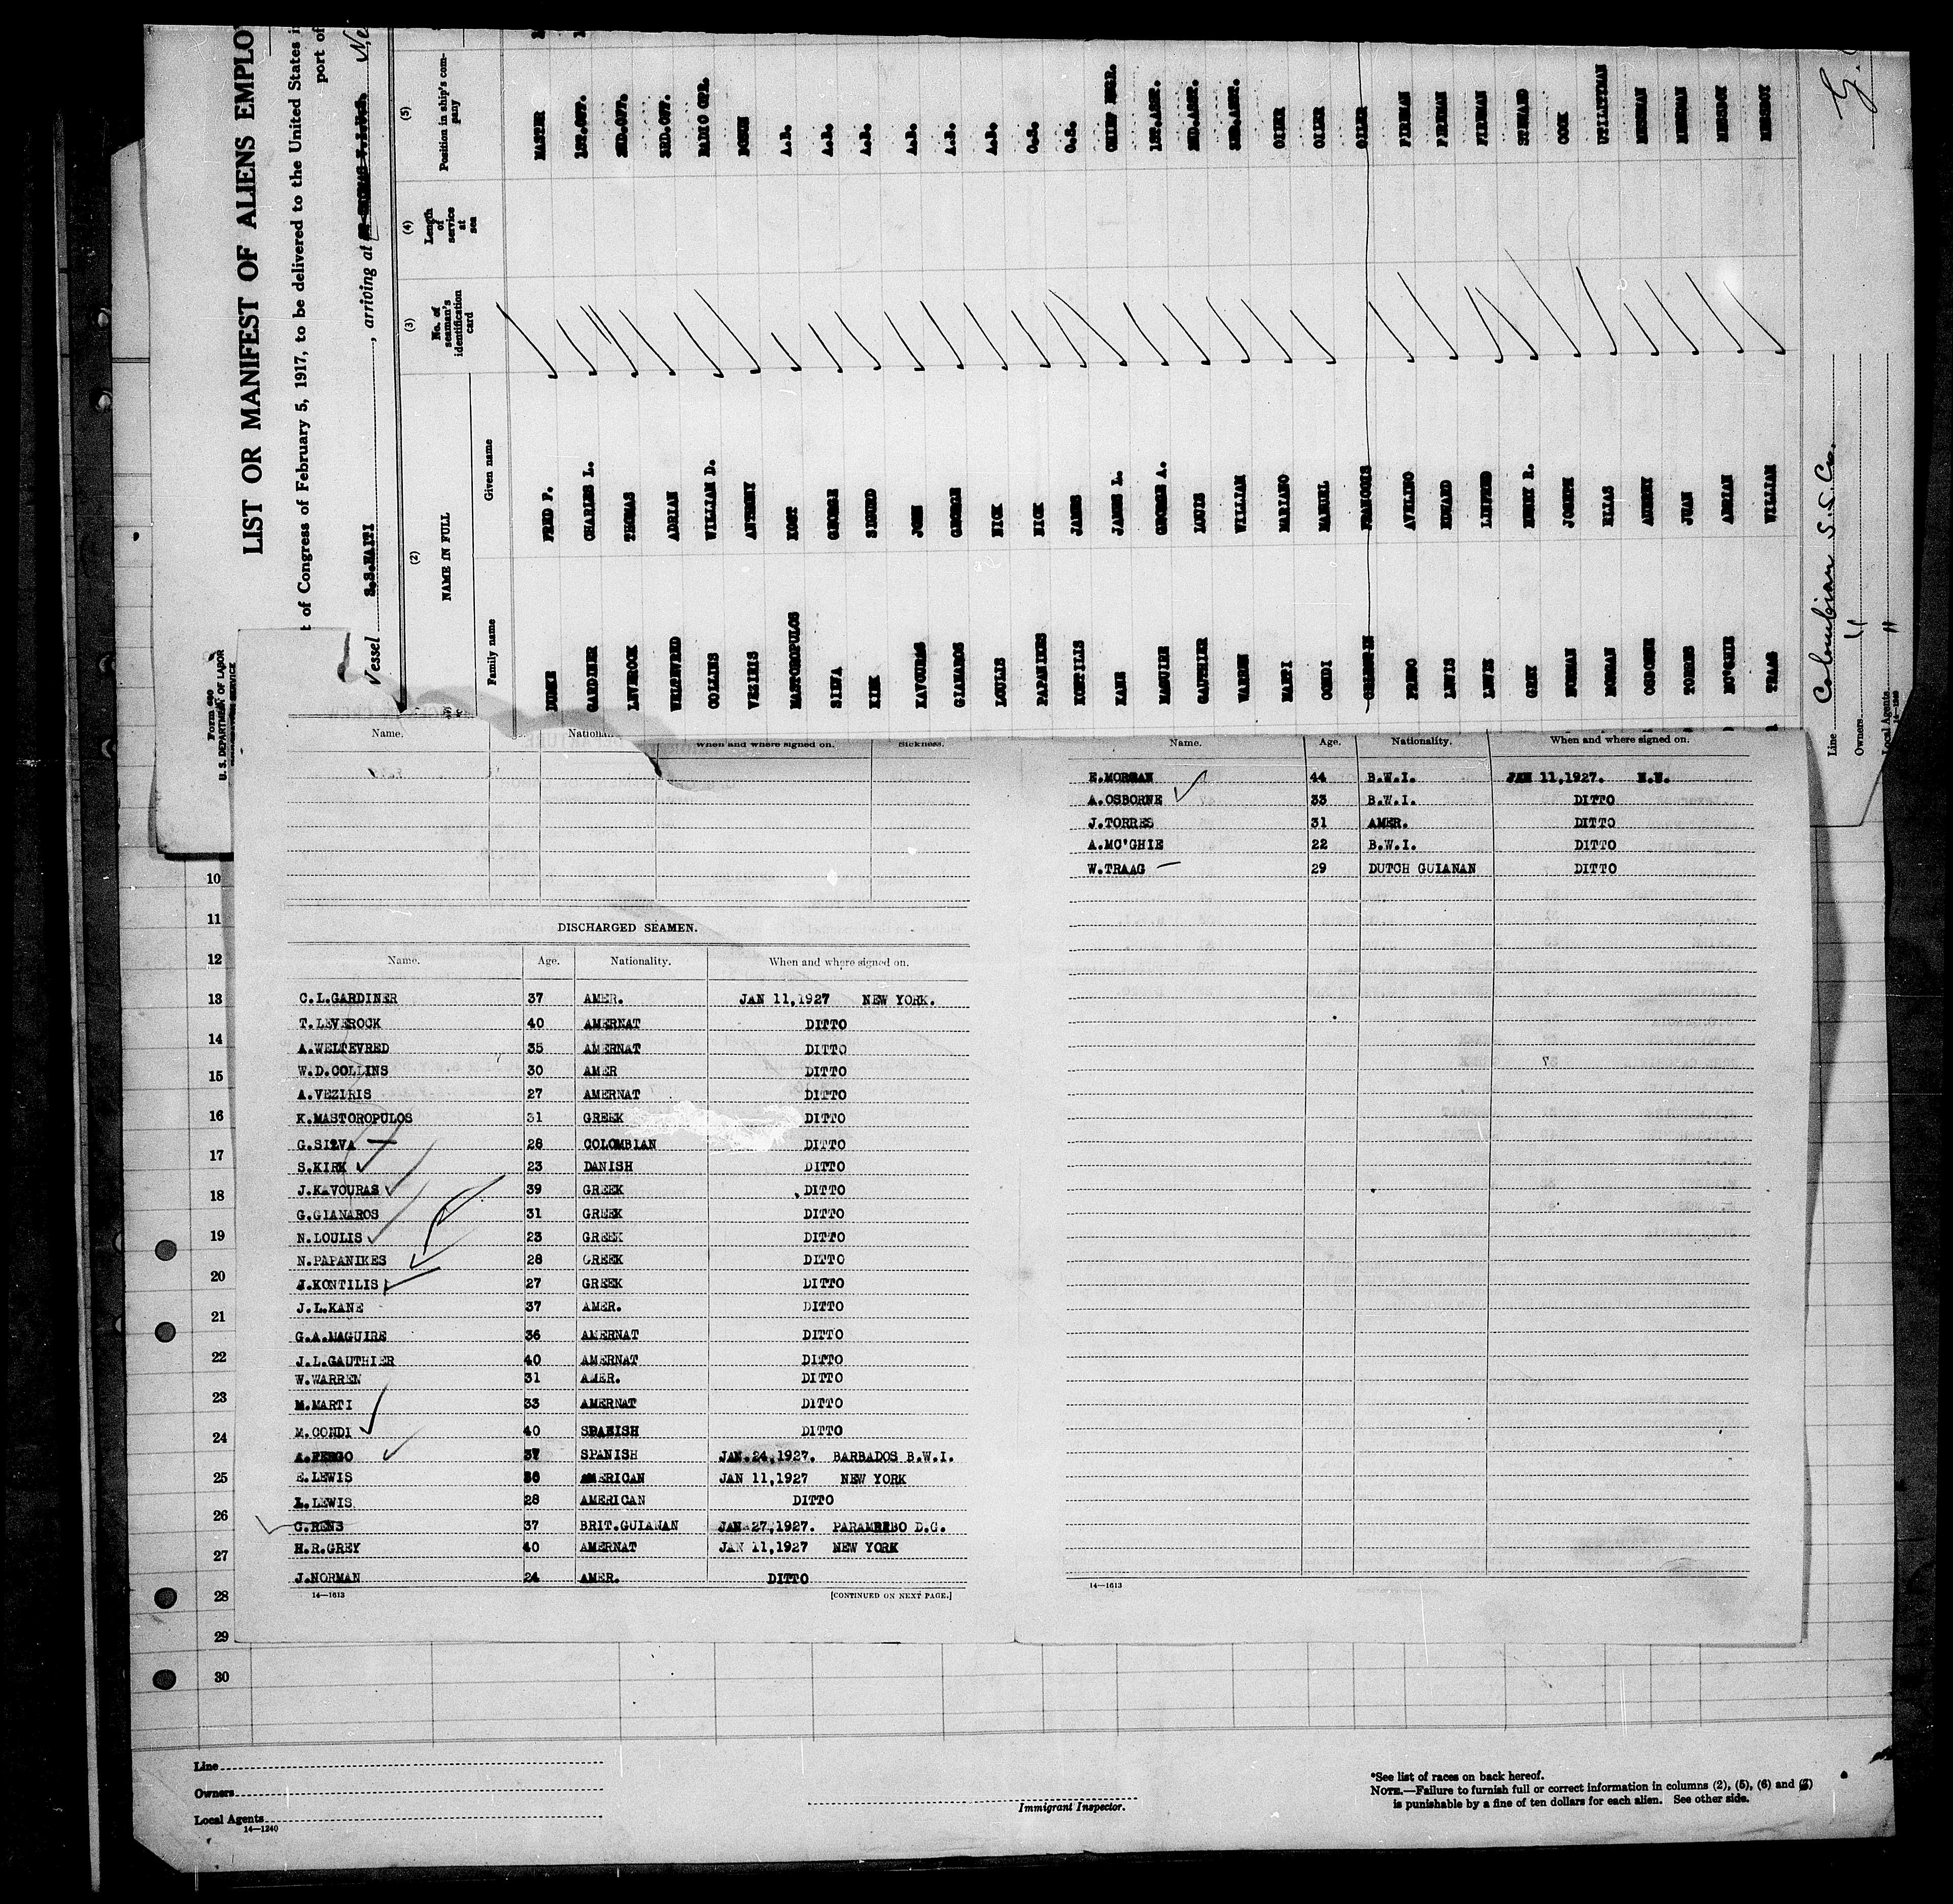 LIST OR MANIFEST OF ALIENS EMPLO
t of Congress of February 5, 1917, to be delivered to the United States i
port of
Vessel S.S.HAITI, arriving at Ne
Form 680
U. S. DEPARTMENT OF LABOR
(2) (3) (4) (5)
NAME IN FULL No. of seaman's identification card Length of service at sea Position in ship's company
Family name Given name
DURKE FRED F. MASTER
GARDINER CHARLES L. 1ST.OFF.
LEVEROCK THOMAS 2ND.OFF.
WELTEVRED ADRIAN 3RD.OFF.
COLLINS WILLIAM D. RADIO OPR.
VEZIRIS ANTHONY BOSUN
MASTOROPULOS KOST A.B.
SILVA GEORGE A.B.
KIRK SIGURD A.B.
KAVOURAS JOHN A.B.
GIANAROS GEORGE A.B.
LOULIS NICK A.B.
PAPANIKES NICK O.S.
KONTILIS JAMES O.S.
KANE JAMES L. CHIEF ENGR.
MAGUIRE GEORGE A. 1ST.ASST.
GAUTHIER LOUIS 2ND.ASST.
WARREN WILLIAM 3RD.ASST.
MARTI MARIANO OILER
CONDI MANUEL OILER
FRANCOIS OILER
PERGO AVELINO FIREMAN
LEWIS EDWARD FIREMAN
LEWIS LINFORD FIREMAN
GREY HENRY R. STEWARD
NORMAN JOSEPH COOK
MORGAN ELIAS UTILITYMAN
OSBORNE AUBREY MESSMAN
TORRES JUAN MESSMAN
MC'GHIE ADRIAN MESSBOY
TRAAG WILLIAM MESSBOY
Line Colombian S.S.Co.
Owners "
Local Agents "
Name. When and where signed on. Sickness.
DISCHARGED SEAMEN.
Name. Age. Nationality. When and where signed on.
C.L.GARDINER 37 AMER. JAN 11,1927 NEW YORK.
T.LEVEROCK 40 AMERNAT DITTO
A.WELTEVRED 35 AMERNAT DITTO
W.D.COLLINS 30 AMER DITTO
A.VEZIRIS 27 AMERNAT DITTO
K.MASTOROPULOS 31 GREEK DITTO
G.SILVA 28 COLOMBIAN DITTO
S.KIRK 23 DANISH DITTO
J.KAVOURAS 39 GREEK DITTO
G.GIANAROS 31 GREEK DITTO
N.LOULIS 23 GREEK DITTO
N.PAPANIKES 28 GREEK DITTO
J.KONTILIS 27 GREEK DITTO
J.L.KANE 37 AMER. DITTO
G.A.MAGUIRE 36 AMERNAT DITTO
J.L.GAUTHIER 40 AMERNAT DITTO
W.WARREN 31 AMER. DITTO
M.MARTI 33 AMERNAT DITTO
M.CONDI 40 SPANISH DITTO
A.PERGO 37 SPANISH JAN.24,1927. BARBADOS B.W.I.
E.LEWIS AMERICAN JAN 11,1927 NEW YORK
L.LEWIS 28 AMERICAN DITTO
C.RENS 37 BRIT.GUIANAN JAN 27,1927. PARAMRIBO D.G.
H.R.GREY 40 AMERNAT JAN 11,1927 NEW YORK
J.NORMAN 24 AMER. DITTO
14—1613 [CONTINUED ON NEXT PAGE.]
Name. Age. Nationality. When and where signed on.
E.MORGAN 44 B.W.I. JAN 11,1927. N.Y.
A.OSBORNE 33 B.W.I. DITTO
J.TORRES 31 AMER. DITTO
A.MC'GHIE 22 B.W.I. DITTO
W.TRAAG 29 DUTCH GUIANAN DITTO
14—1613
10
11
12
13
14
15
16
17
18
19
20
21
22
23
24
25
26
27
28
29
30
Line
Owners
Local Agents
14—1240
Immigrant Inspector.
*See list of races on back hereof.
NOTE.—Failure to furnish full or correct information in columns (2), (5), (6) and (7)
is punishable by a fine of ten dollars for each alien. See other side.